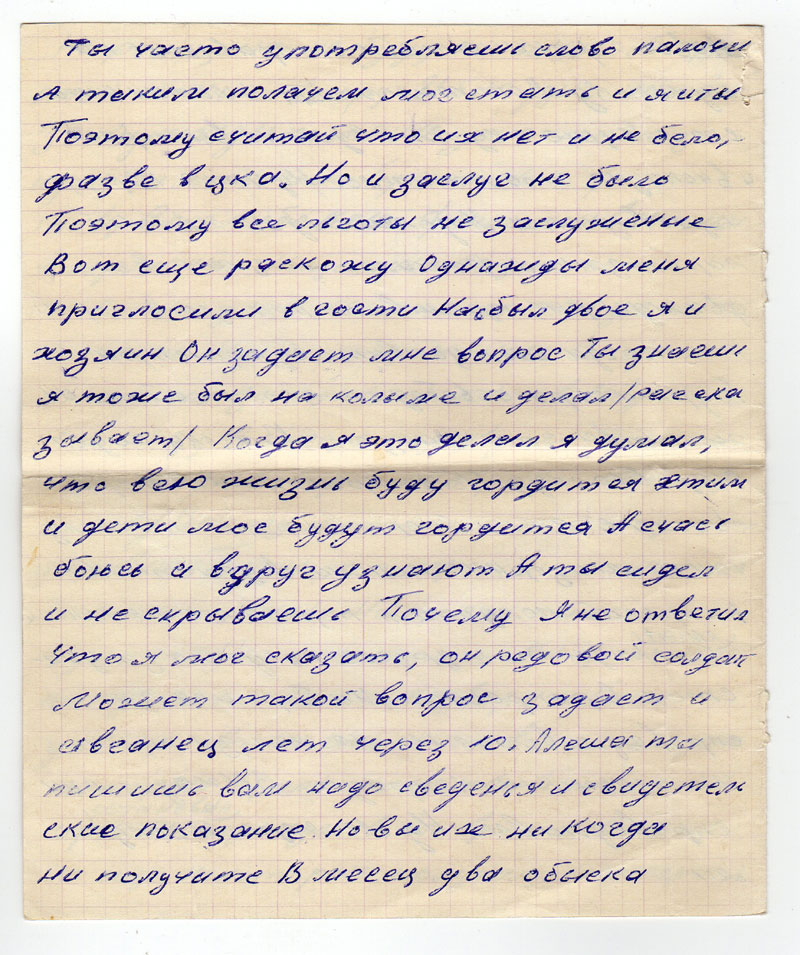 Ты часто употребляеш слово палочи
А таким полачем мог стать и я и ты
Поэтому считай что их нет и не было,
разве в цка. Но и заслуг не было
Поэтому все льготы не заслуженые
Вот еще раскожу Однажды меня
приглосили в гости Нас был двое я и
хозяин Он задает мне вопрос Ты знаеш
я тоже был на колыме и делал /расска
зывает/ Когда я это делал я думал,
что всю жизнь буду гордится этим
и дети мое будут гордится А счас
боюсь а вдруг узнают А ты сидел
и не скрываешь Почему Я не ответил
Что я мог сказать, он редовой солдат
Может такой вопрос задаст и
авганец лет через 10. Алеша ты
пишишь вам надо сведенья и свидетель
ские показание. Но вы их ни когда
ни получите В месец два обыска